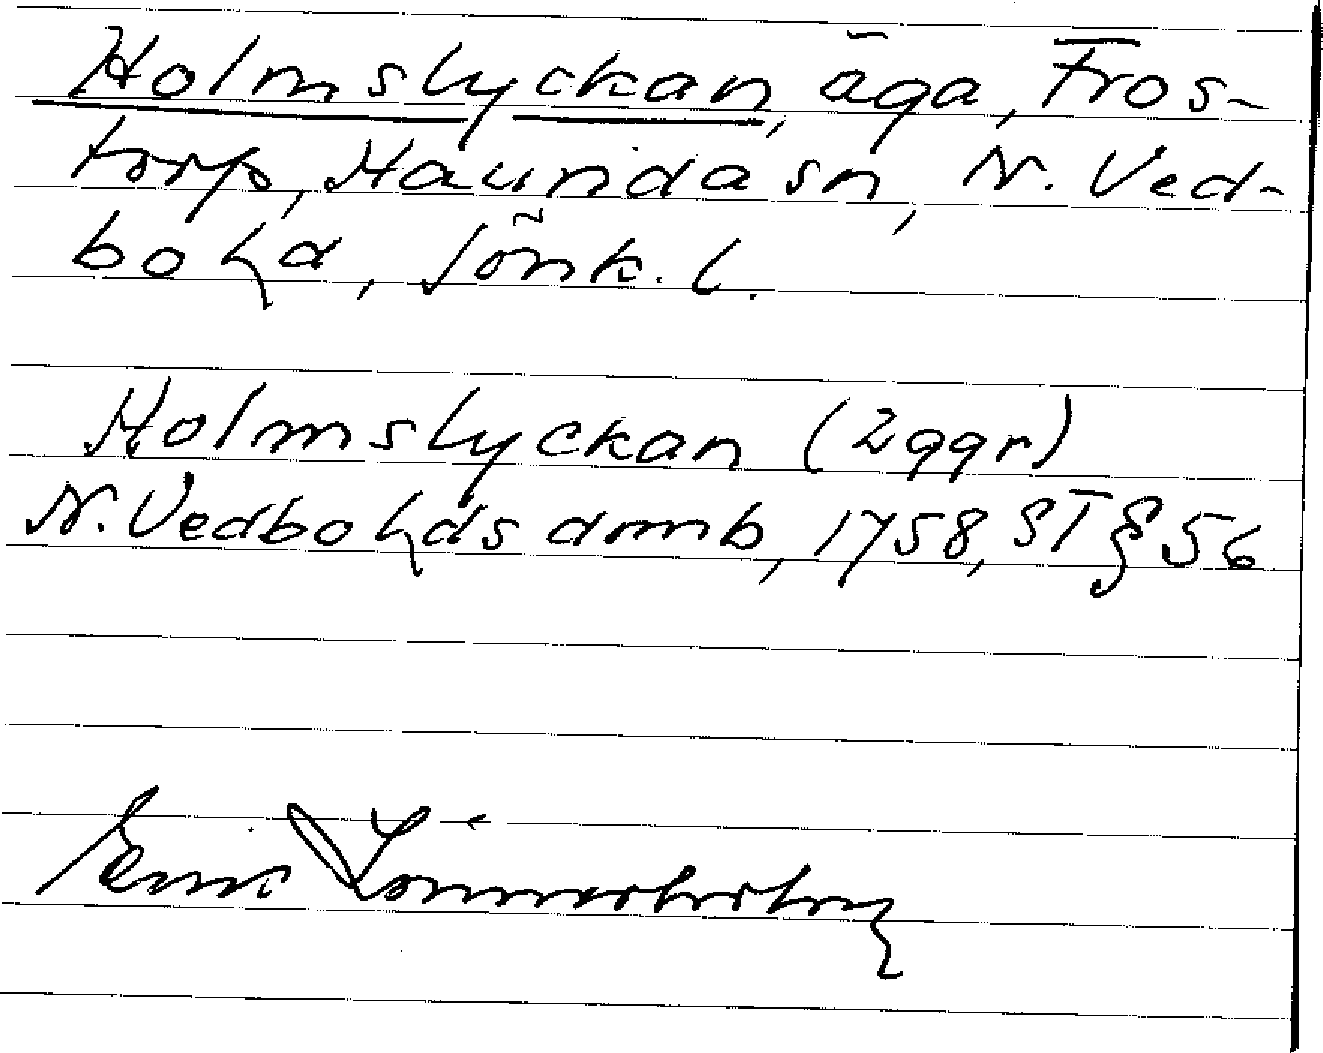 Holmslyckan, äga, Fros-
torp, Haurida sn, N. Ved-
bo hd, Jönk. l.
Holmslyckan (2ggr)
N. Vedbo hds domb, 1758, ST § 56